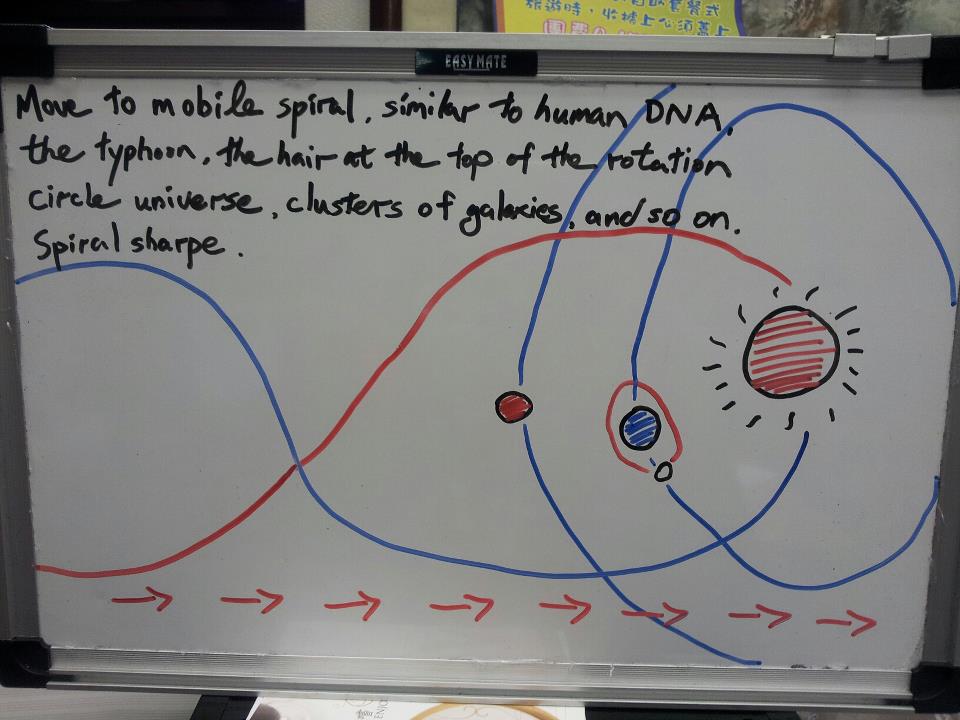 旅遊時，收據上必須蓋上
EASY MATE
Move to mobile spiral, similar to human DNA,
the typhoon, the hair at the top of the rotation
circle universe, clusters of galaxies, and so on.
Spiral sharpe.